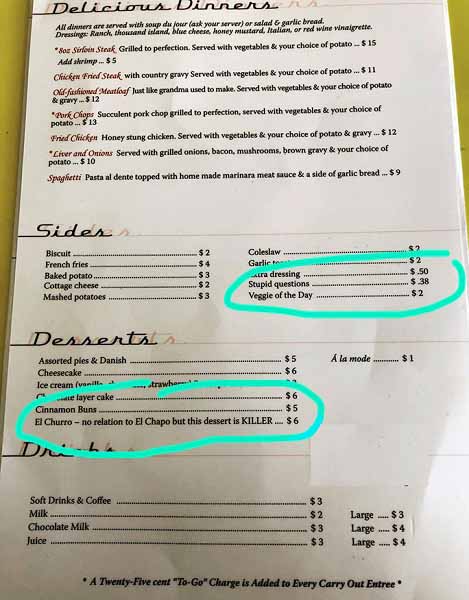 Delicious Dinners
All dinners are served with soup du jour (ask your server) or salad & garlic bread.
Dressings: Ranch, thousand island, blue cheese, honey mustard, Italian, or red wine vinaigrette.
*8oz Sirloin Steak Grilled to perfection. Served with vegetables & your choice of potato ... $ 15
Add shrimp ... $ 5
Chicken Fried Steak with country gravy Served with vegetables & your choice of potato ... $ 11
Old-fashioned Meatloaf Just like grandma used to make. Served with vegetables & your choice of potato
& gravy ... $ 12
*Pork Chops Succulent pork chop grilled to perfection, served with vegetables & your choice of
potato ... $ 13
Fried Chicken Honey stung chicken. Served with vegetables & your choice of potato & gravy ... $ 12
*Liver and Onions Served with grilled onions, bacon, mushrooms, brown gravy & your choice of
potato ... $ 10
Spaghetti Pasta al dente topped with home made marinara meat sauce & a side of garlic bread ... $ 9
Sides
Biscuit $ 2
French fries $ 4
Baked potato $ 3
Cottage cheese $ 2
Mashed potatoes $ 3
Coleslaw $ 2
Garlic $ 2
dressing $ .50
Stupid questions $ .38
Veggie of the Day $ 2
Desserts
Assorted pies & Danish $ 5
Cheesecake $ 6
Ice cream
layer cake $ 6
Cinnamon Buns $ 5
El Churro – no relation to El Chapo but this dessert is KILLER .... $ 6
Á la mode $ 1
Drinks
Soft Drinks & Coffee $ 3
Milk $ 2 Large ..... $ 3
Chocolate Milk $ 3 Large .... $ 4
Juice $ 3 Large ..... $ 4
* A Twenty-Five cent "To-Go" Charge is Added to Every Carry Out Entree *